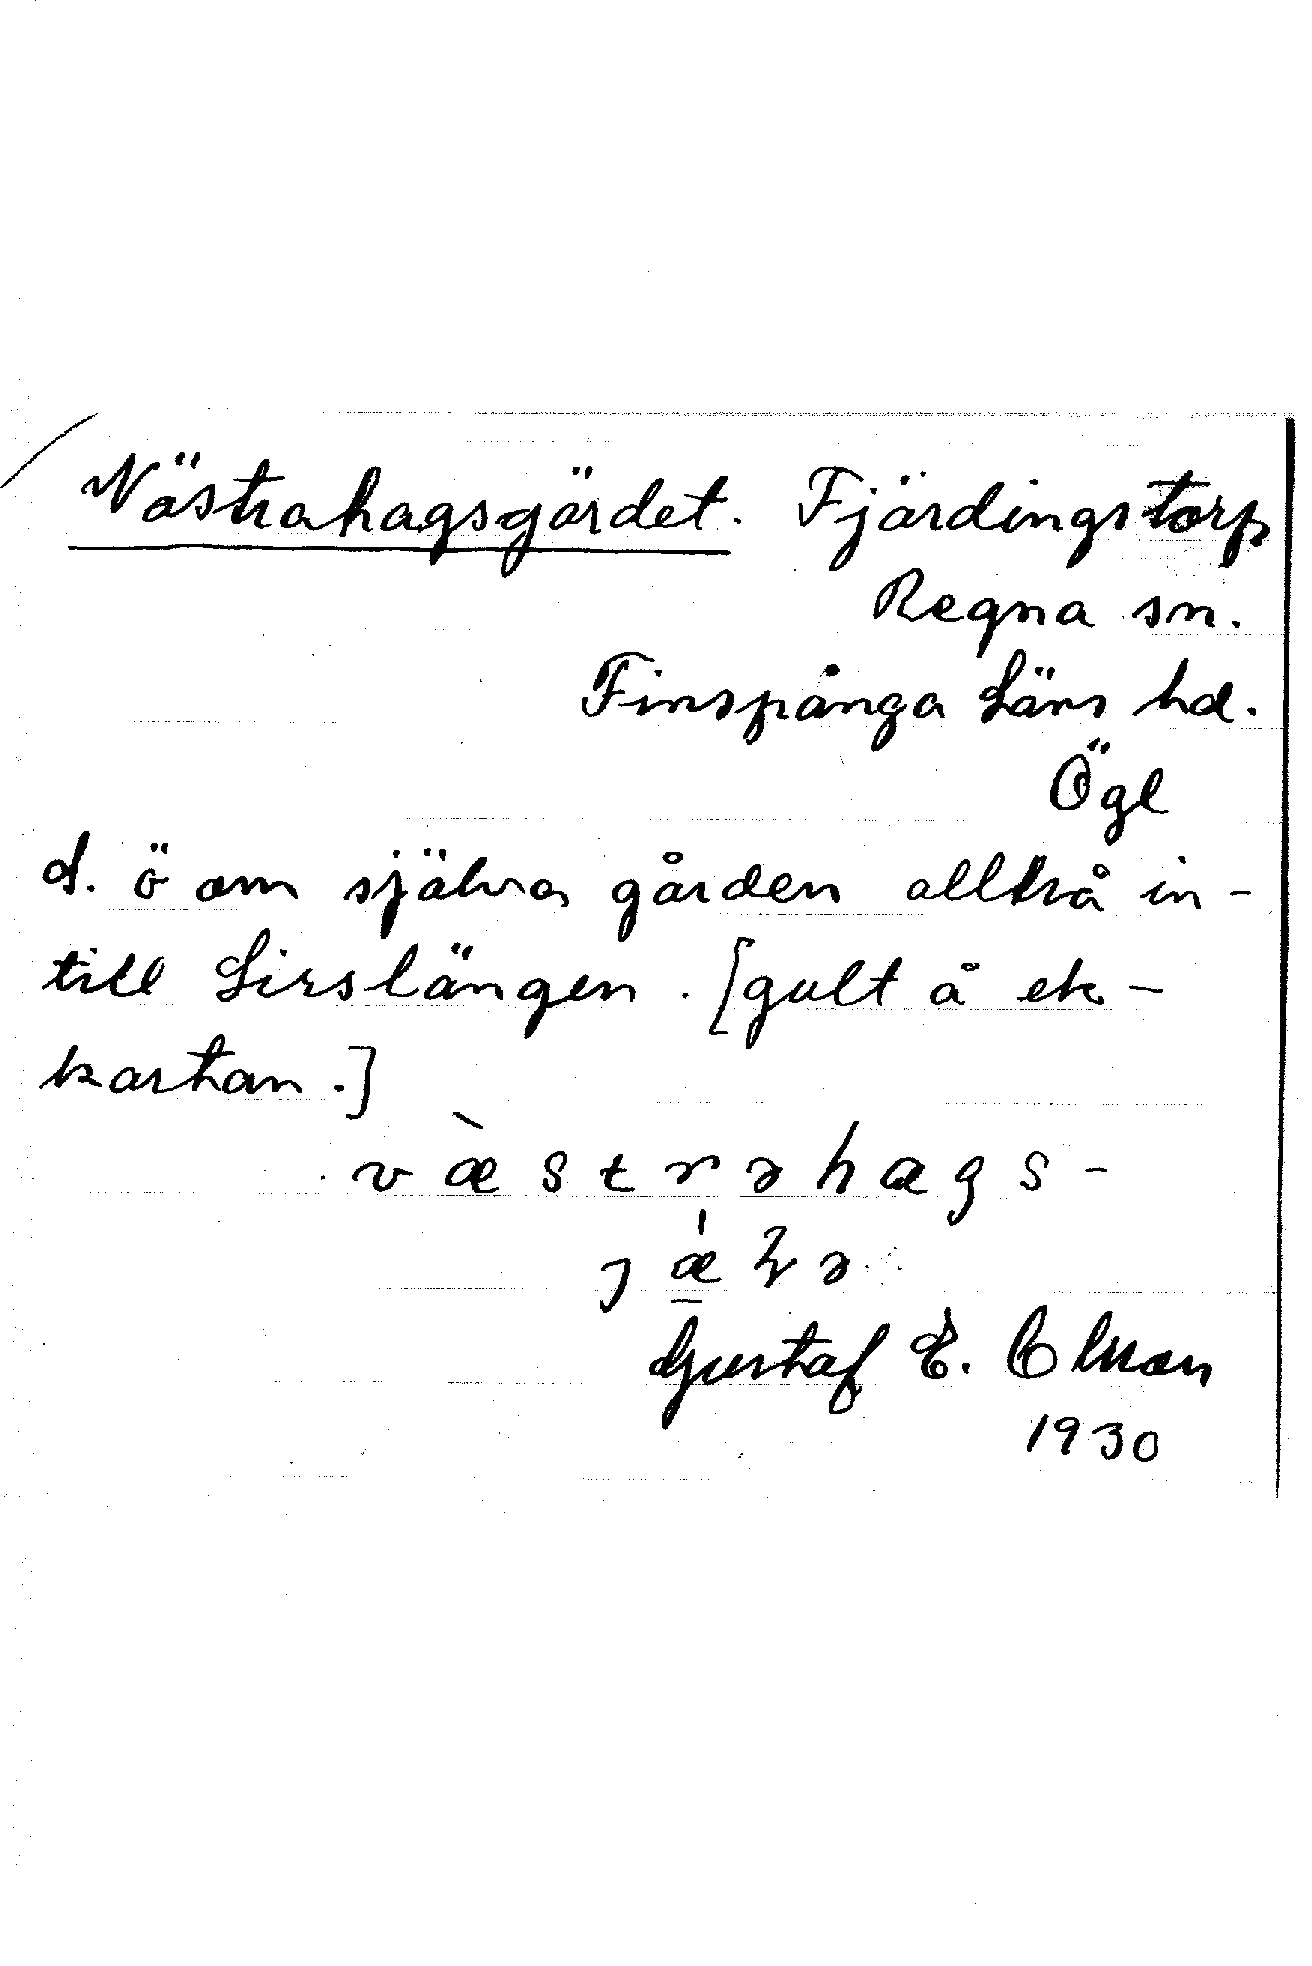 Västrahagsgärdet. Fjärdingstorp
Regna sn.
Finspånga Läns hd.
Ögl
d. ö om själva gården alltså in-
till Sirslängen. [gult å ek-
kartan.]
væ̀strəhags-
Gustaf E. Olsson
1930